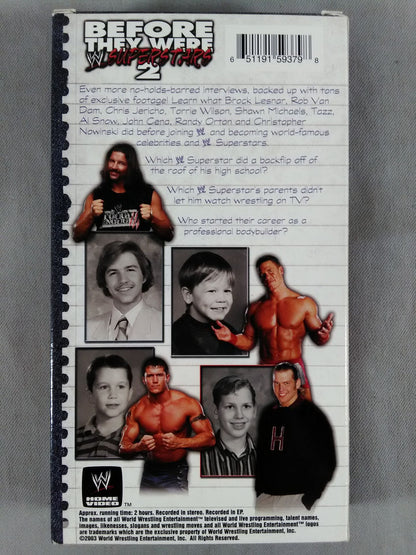 BEFORE
THEY WERE
W SUPERSTARS
2
6 51191 59379 8
Even more no-holds-barred interviews, backed up with tons
of exclusive footage! Learn what Brock Lesnar, Rob Van
Dam, Chris Jericho, Torrie Wilson, Shawn Michaels, Tazz,
Al Snow, John Cena, Randy Orton and Christopher
Nowinski did before joining W and becoming world-famous
celebrities and W Superstars.
Which W Superstar did a backflip off of
the roof of his high school?
Which W Superstar's parents didn't
let him watch wrestling on TV?
Who started their career as a
professional bodybuilder?
H
W
HOME
VIDEO™
Approx. running time: 2 hours. Recorded in stereo. Recorded in EP.
The names of all World Wrestling Entertainment™ televised and live programming, talent names,
images, likenesses, slogans and wrestling moves and all World Wrestling Entertainment™ logos
are trademarks which are the exclusive property of World Wrestling Entertainment, Inc.
©2003 World Wrestling Entertainment, Inc. All Rights Reserved.